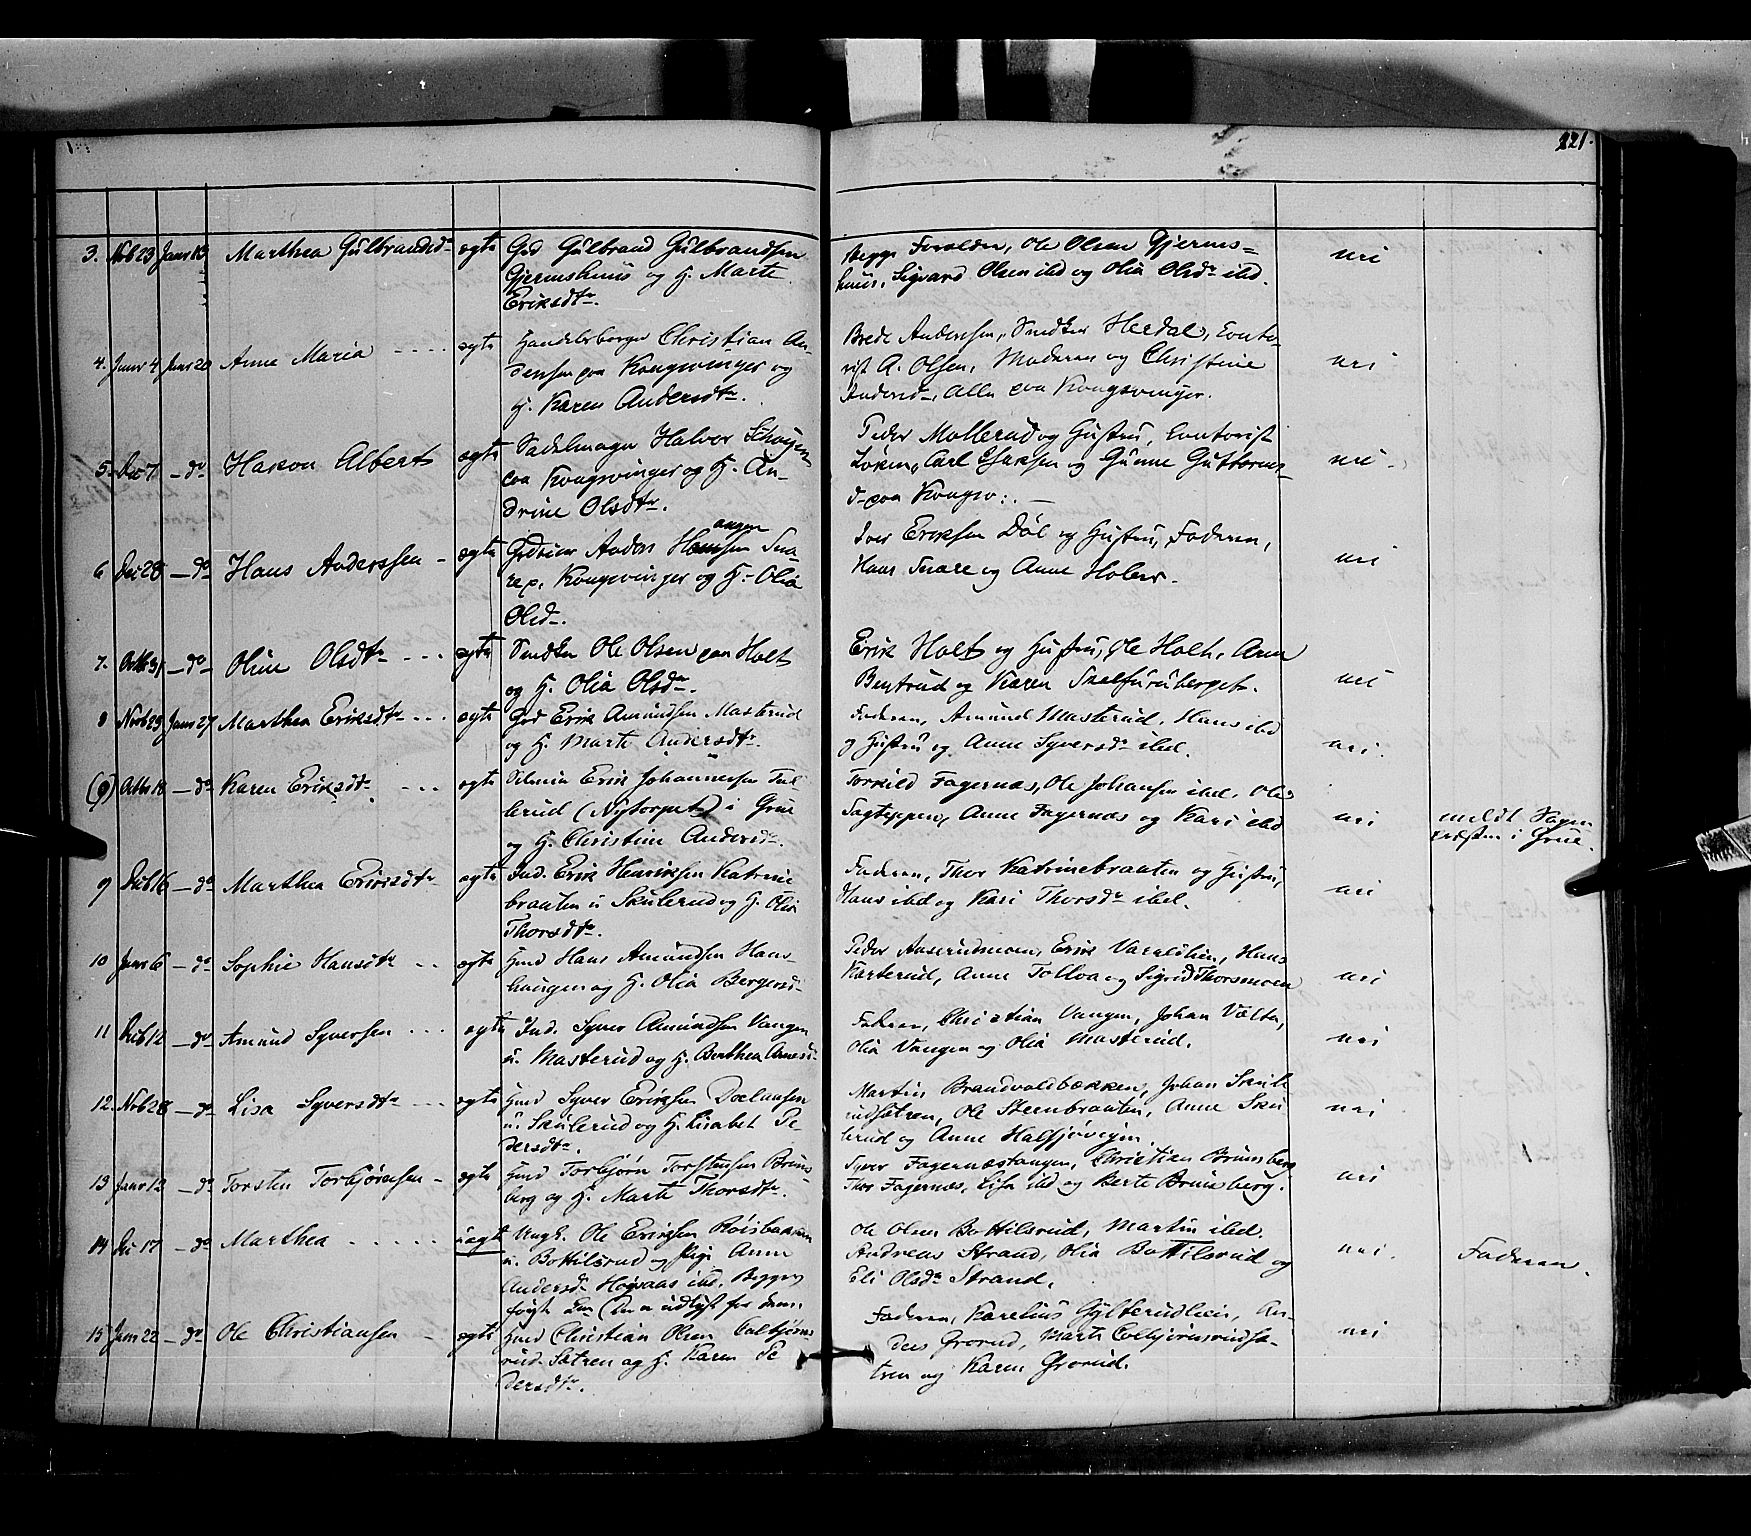 221.
3. Nvb 23 Janr 13 Marthea Gülbrandsdr ægte Grd Gülbrand Gülbrandsen
Gjermshuus og H. Marte
Eriksdtr.
Begge Forældre, Ole Olsen Gjerms=
huus, Sigvard Olsen ibd og Olia Olsdr ibd.
nei
4. Janr 4 Janr 20 Anne Maria - - - - ægte Handelsborger Christian An=
dersen paa Kongsvinger og
H. Karen Andersdtr.
Brede Andersen, Snedker Heedal, Conto=
rist A. Olsen, Moderen og Christine
Andersd, alle paa Kongsvinger.
nei
5. Dec 7 - do Hakon Albert ægte Sadelmager Halvor Schøyen
paa Kongsvinger og H. An=
drine Olsdtr.
Peder Mollerud og Hustru, Contorist
Løken, Carl Isaksen og Gunne Guttorms=
d paa Kongsv:.
nei
6 Dec 28 - do Hans Anderssen - ægte Anders Hansen Sna=
re p. Kongsvinger og H. Olia
Olsd.
Iver Eriksen Døl og Hustru, Faderen,
Hans Snare og Anne Holer.
nei
7. Octb 31 - do Oline Olsdtr - - - ægte Snedker Ole Olsen paa Holt
og H. Olia Olsdr.
Erik Holt og Hustru, Ole Holt, Anne
Bentrud og Karen Skalfuruberget.
nei
8 Novb 29 Janr 27 Marthea Eriksdtr - - - ægte Grd Erik Amundsen Masterud
og H. Marte Andersdtr.
Faderen, Amund Masterud, Hans ibd
og Hustru og Anne Syversdr ibd.
nei.
(9) Octbr 18 - do Karen Eriksdtr - - - ægte Erik Johannesen
(Nytorpet) i Grue
og H. Christine Andersdr.
Torkild Fagernæs, Ole Johansen ibd, Ole
Sagteppen, Anne Fagernæs og Kari ibd
nei
meldt Sogne
præsten i Grue.
9 Decb 16 - do Marthea Eriksdtr ægte Ind. Erik Henriksen Katrine
braaten u. Skulerud og H. Olia
Thorsdtr.
Faderen, Thor Katrinebraaten og Hustru,
Hans ibd og Kari Thorsdr ibd.
nei
10 Janr 6 - do Sophie Hansdtr - - ægte Husmd Hans Amundsen Hans=
haugen og H. Olia Bergersd
Peder Aaserudmoen, Erik Varaldlien, Hans
Karterud, Anne Tollva og Sigrid Thorsmoen
nei
11 Decb 12 - do Amund Syversen - - - ægte Ind. Syver Amundsen Vangen
u. Masterud og H. Berthea Arnesd.
Faderen, Christian Vangen, Johan Vælta,
Olia Vangen og Olia Masterud.
nei
12. Nvb 28 - do Lisa Syversdtr - - - ægte Husmd Syver Eriksen
u. Skulerud og H. Lisabet Pe=
dersdtr.
Martin Brandvoldbækken, Johan Skule
rudsætren, Ole Steenbraaten, Anne Sku
lerud og Anne Halsjøveien.
nei
13 Janr 12 - do Torsten Torbjørnsen - ægte Husmd Torbjørn Torstensen Bruns
berg og H. Marte Thorsdtr.
Syver Fagernæstangen, Christian Brunsberg,
Thor Fagernæs, Lisa ibd og Berte Brunsberg.
nei
14 Dec 17 - do Marthea - - - - - uægt Ungk. Ole Eriksen
u. Bottilsrud og Pige Anne
Andersdr Høgaas ibd. Begges
første Leie (Der er udlyst for dem.
Ole Olsen Bottilsrud, Martin ibd.
Andreas Strand, Olia Bottilsrud og
Eli Olsdr Strand.
nei.
Faderen.
15 Janr 22 - do Ole Christiansen - ægte Husmd Christian Olsen Colbjørns
rud-Sætren og H. Karen Pe
dersdtr.
Faderen, Karelius Gylterudlien, An=
ders Grorud, Marte Colbjørnsrudsæ=
tren og Karen Grorud.
nei